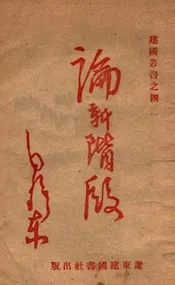 建國叢書之四
論新階段
毛澤东
遼東建國書社出版